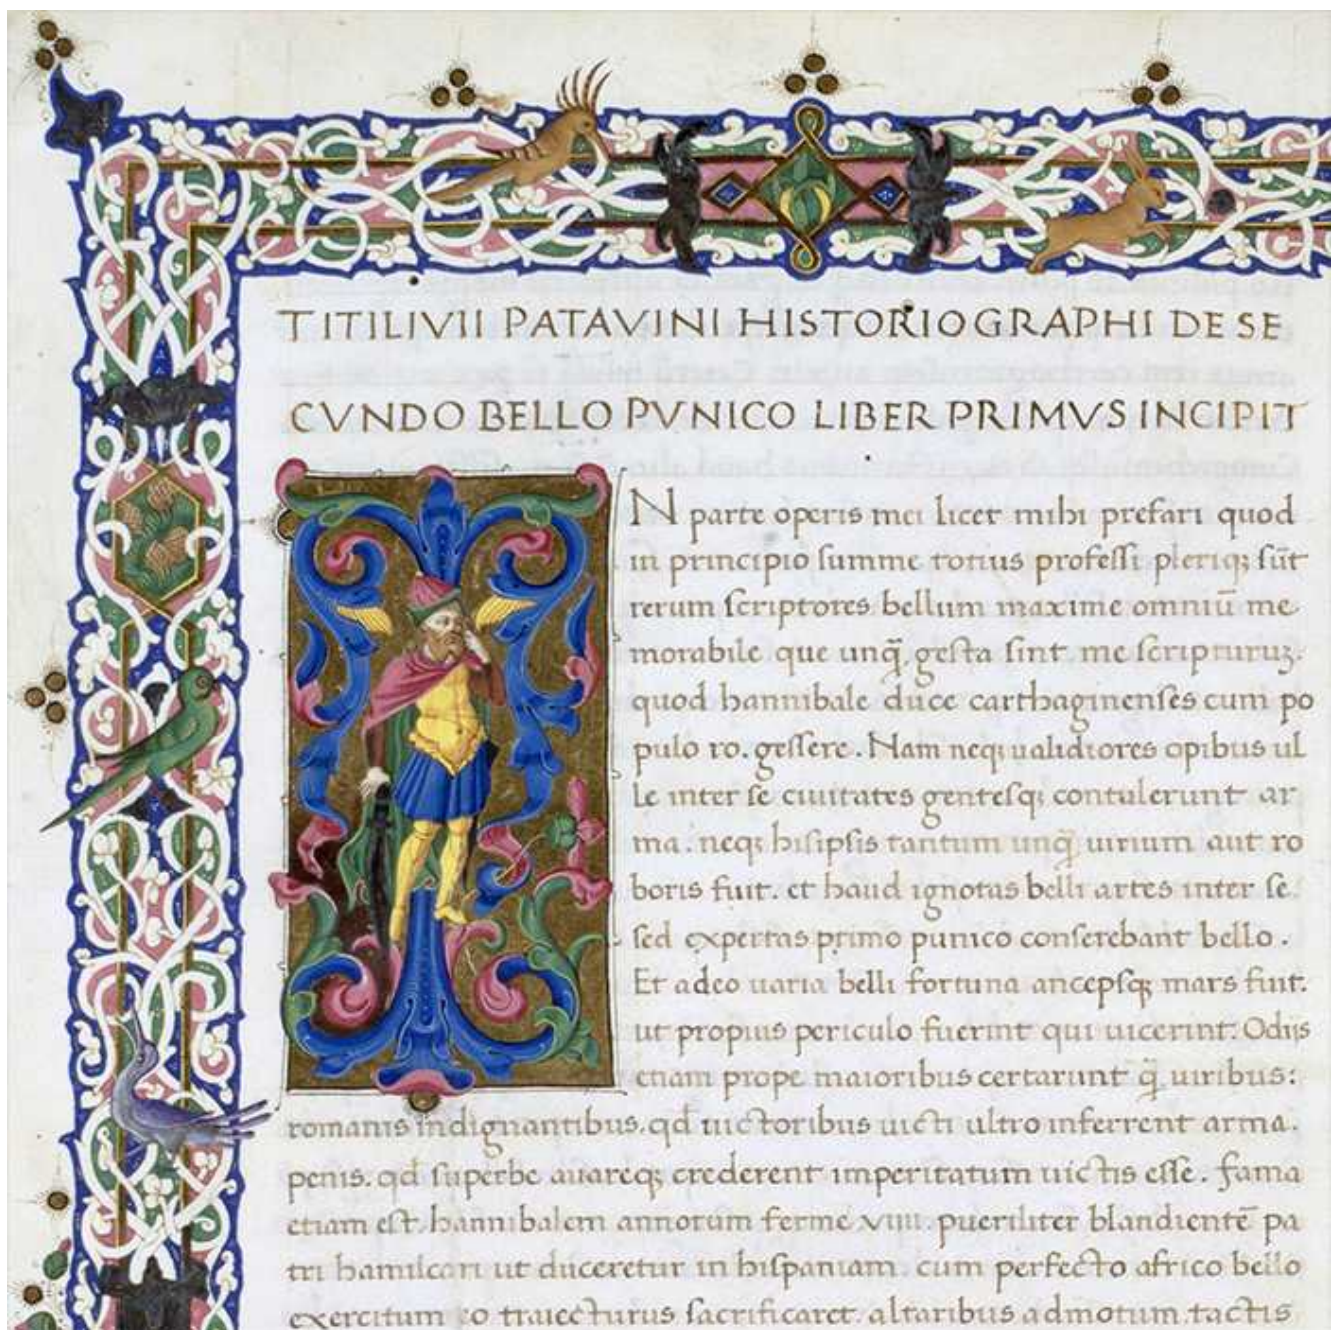 TITI LIVII PATAVINI HISTORIOGRAPHI DE SE
CVNDO BELLO PVNICO LIBER PRIMVS INCIPIT
IN parte operis mei licet mihi prefari quod
in principio summe totius professi pleriq; sūt
rerum scriptores bellum maxime omniū me
morabile que unq̄ gesta sint me scripturuȝ.
quod hannibale duce carthaginenses cum po
pulo ro. gessere. Nam neq; ualidiores opibus ul
le inter se ciuitates gentesq; contulerunt ar
ma. neq; his ipsis tantum unq̄ uirium aut ro
boris fuit. et haud ignotas belli artes inter se.
sed expertas primo punico conserebant bello.
Et adeo uaria belli fortuna ancepsq; mars fuit.
ut propius periculo fuerint qui uicerint. Odijs
etiam prope maioribus certarunt q̄ uiribus:
romanis indignantibus. qd uictoribus uicti ultro inferrent arma.
penis. qd superbe auareq; crederent imperitatum uictis esse. fama
etiam est. hannibalem annorum ferme viiii pueriliter blandientē pa
tri hamilcari ut duceretur in hispaniam. cum perfecto africo bello
exercitum eo traiecturus sacrificaret. altaribus admotum. tactis